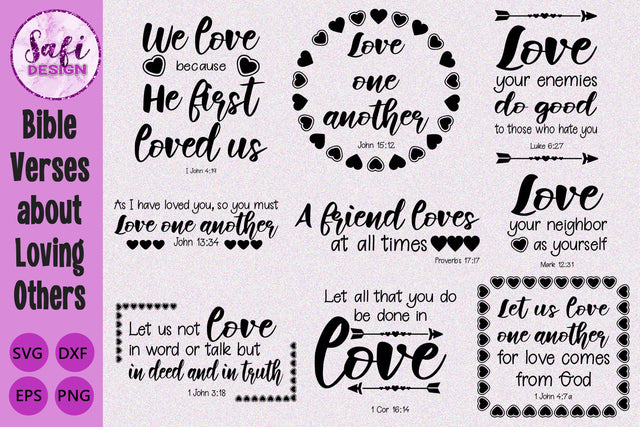 Safi
DESIGN
Bible
Verses
about
Loving
Others
SVG DXF
EPS PNG
We love
because
He first
loved us
1 John 4:19
Love
one
another
John 15:12
Love
your enemies
do good
to those who hate you
Luke 6:27
As I have loved you, so you must
Love one another
John 13:34
A friend loves
at all times
Proverbs 17:17
Love
your neighbor
as yourself
Mark 12:31
Let us not love
in word or talk but
in deed and in truth
1 John 3:18
Let all that you do
be done in
love
1 Cor 16:14
Let us love
one another
for love comes
from God
1 John 4:7a